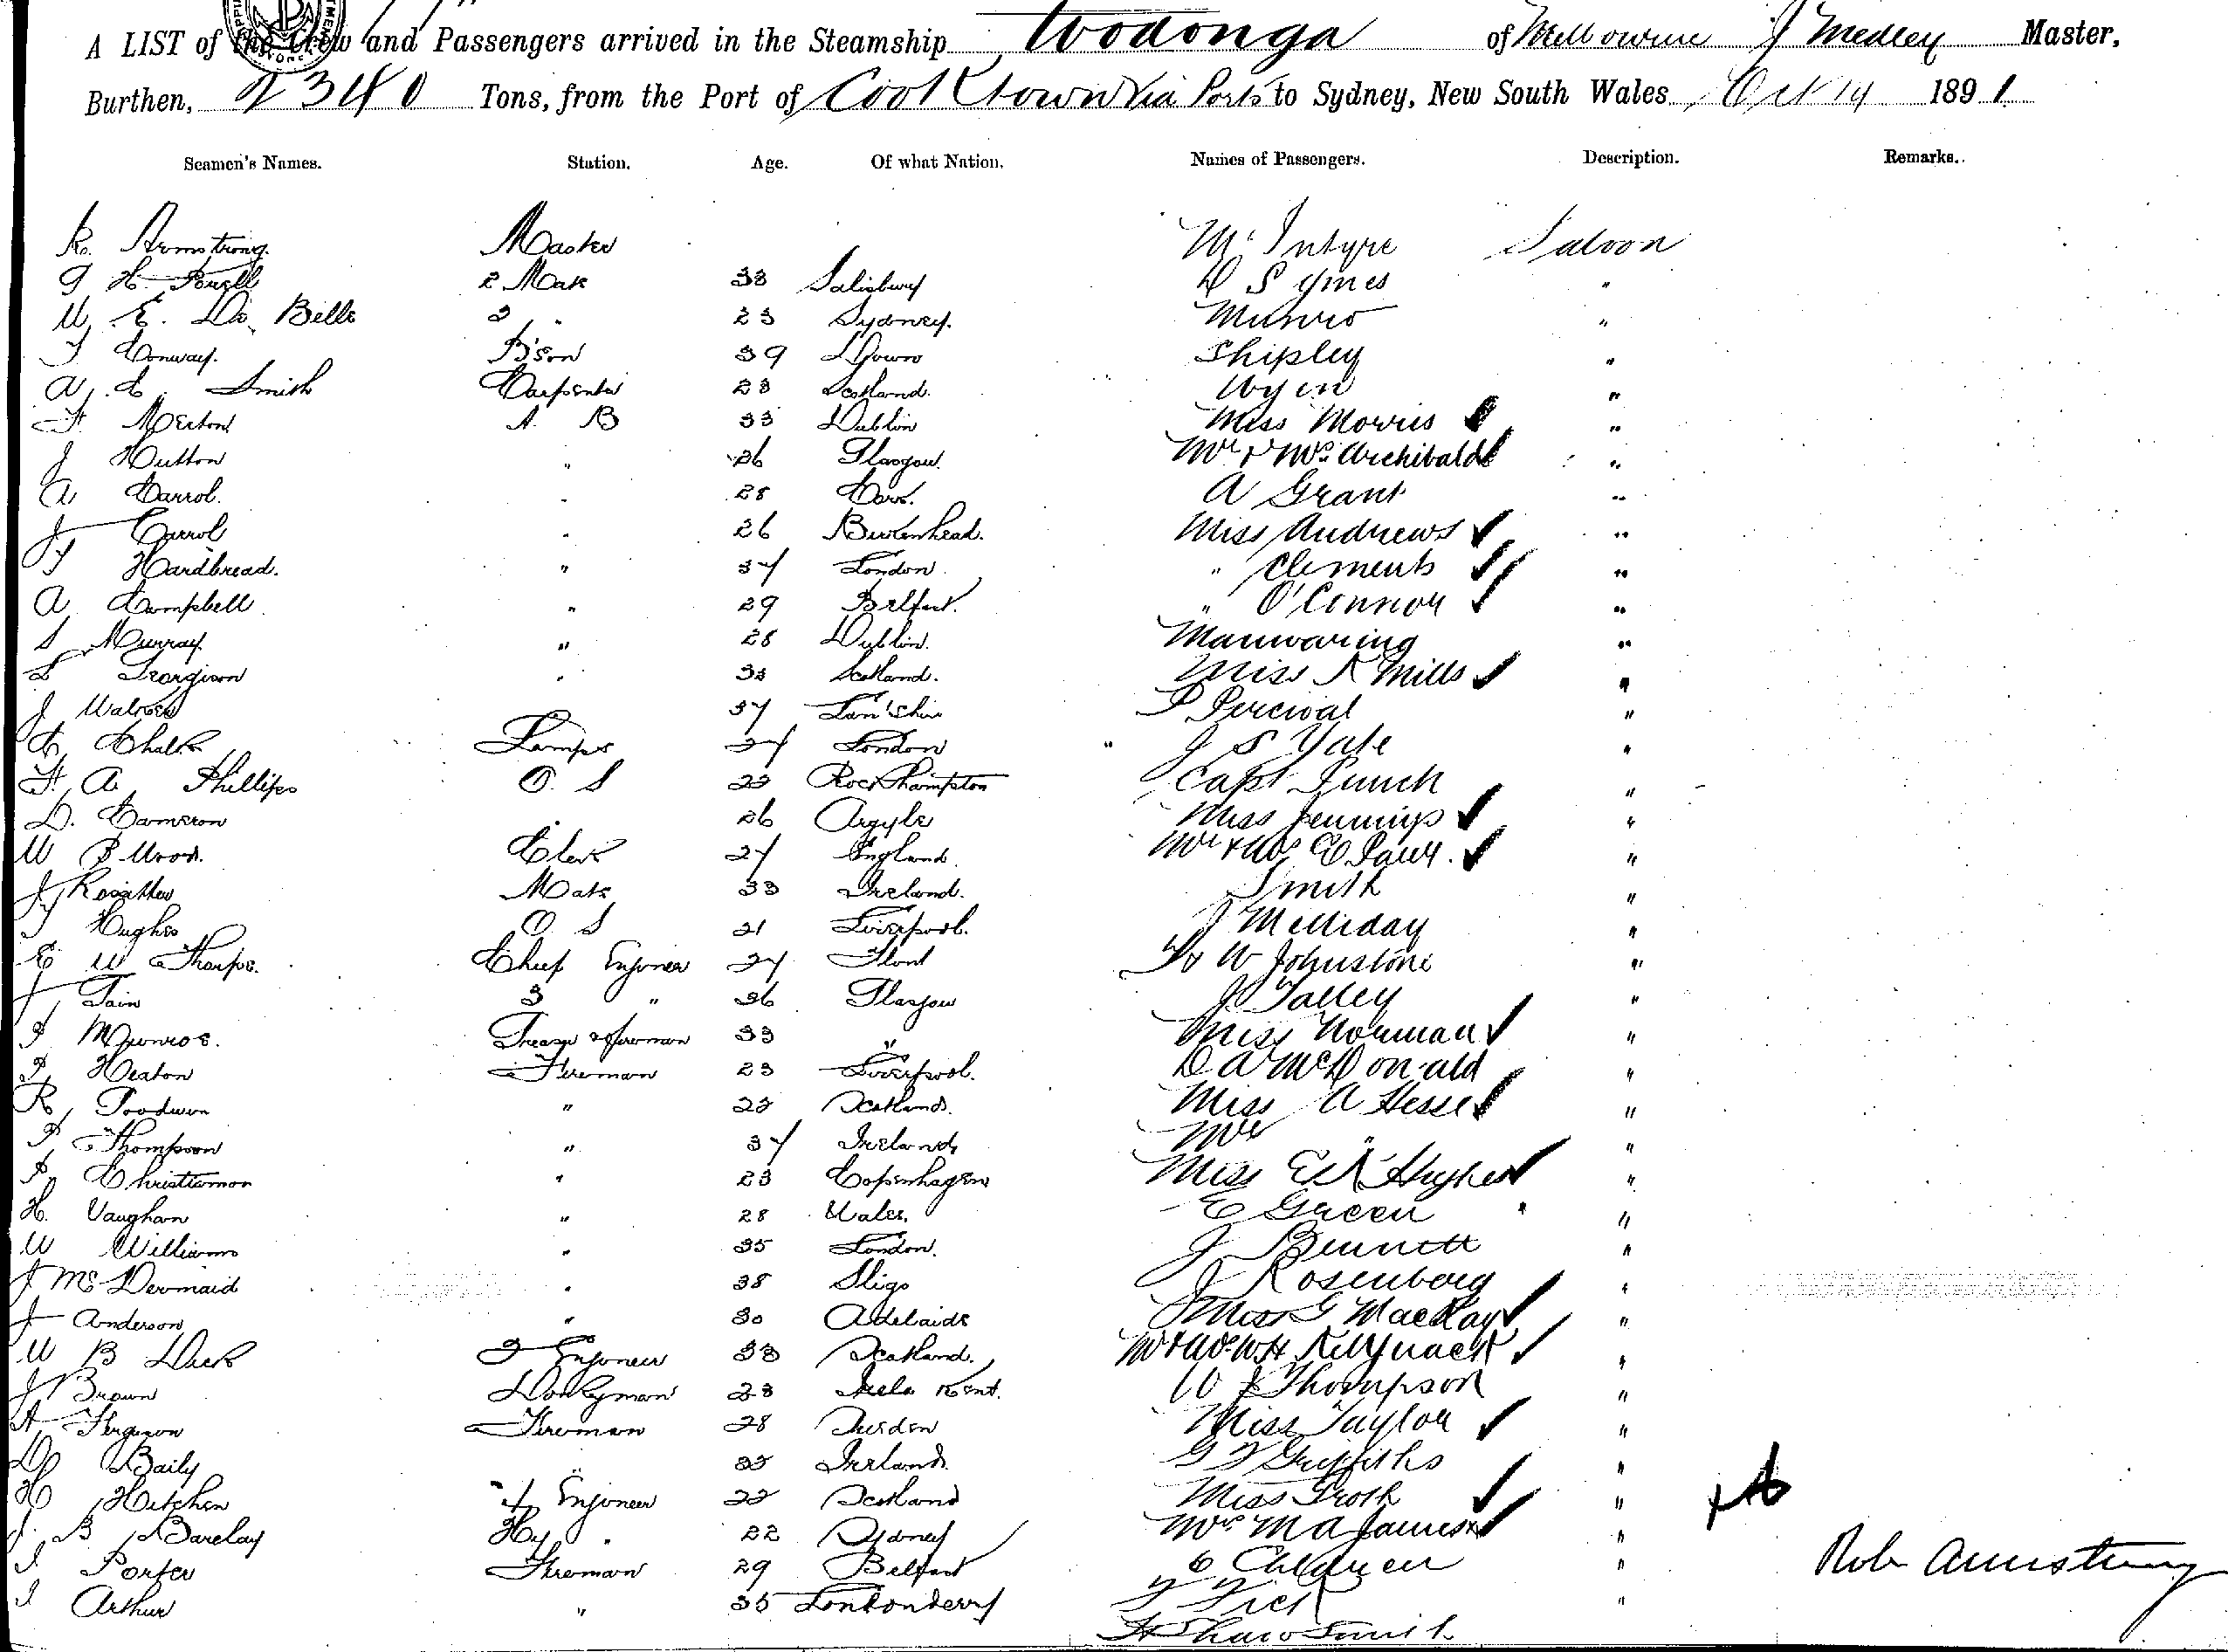 A LIST of the Crew and Passengers arrived in the Steamship Wodonga of Melbourne J Medley Master,
Burthen, 2340 Tons, from the Port of Cooktown via Ports to Sydney, New South Wales, Oct 14 1891.
Seamen's Names. Station. Age. Of what Nation. Names of Passengers. Description. Remarks.
R. Armstrong. Master Mc Intyre Saloon
G H. Powell 2 Mate 38 Salisbury D Symes "
W. E. De Belle 3 " 23 Sydney. Munro "
J Conway. B'son 39 Down Shipley "
A. E. Smith Carpenter 28 Scotland. "
H. Merton A. B 33 Dublin Miss Morris "
J Hutton " 26 Glasgow. Mr & Mrs Archibald "
A Carrol. " 28 A Grant "
J Carrol " 26 Birkenhead. Miss Andrews "
J Hardbread. " 34 London. " Clements "
A Campbell " 29 Belfast. " O'Connor "
S Murray. " 28 Dublin. Manwaring "
" Scotland. Miss K Mills "
J 34 Lan'shire P Percival "
Chalk Lamps 24 London J S Yate "
H. A. Phillips O. S 22 Rockhampton Capt Punch "
D. Cameron 26 Argyle Miss Jennings "
W B Wood. Clerk 24 England. Mr & Mrs "
J Mate 33 Ireland. Smith "
J Hughes O. S 21 Liverpool. J Melliday "
E W Thorpe. Chief Engineer 24 Flint W Johnstone "
J Tain 3 " 36 Glasgow J Talley "
J Munroe. Greaser & fireman 33 " Miss Norman "
J. Heaton Fireman 23 Liverpool. D A McDonald "
R. Goodwin " 22 Scotland. Miss A Hesse "
P Thompson " 34 Ireland Mr " "
P. Christianson " 23 Copenhagen Miss E K Hughes "
H. Vaughan " 28 Wales. E Green "
W Williams " 35 London. J Bennett "
J McDermaid " 38 Sligo J Rosenberg "
J Anderson " 30 Adelaide Miss G MacKay "
W B Dick 2 Engineer 38 Scotland. Mr & Mrs W H "
J Brown Donkeyman 28 Kent. W J Thompson "
A. Ferguson Fireman 28 Miss Taylor "
D Baily " 35 Ireland. G F Griffiths "
H Hitchen 4 Engineer 22 Scotland Miss Froth "
J. B Barclay " 22 Sydney Mrs M A James "
J. Porter Fireman 29 Belfast 6 Children "
J Arthur " 35 Londonderry "
H Shaw Smith
Rob Armstrong